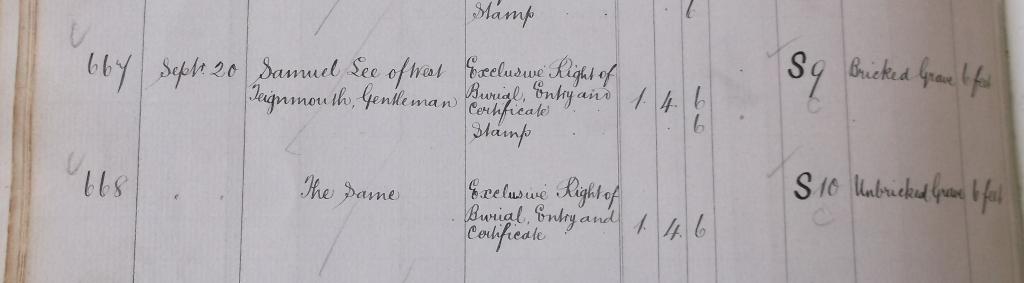 Stamp . . 6
667 Sept. 20 Samuel Lee of West Exclusive Right of S 9 Bricked Grave 6 feet
Teignmouth, Gentleman Burial, Entry and 1. 4. 6 C
Certificate
Stamp . . 6
668 . . The Same Exclusive Right of S 10 Unbricked Grave 6 feet
Burial, Entry and 1. 4. 6 C
Certificate